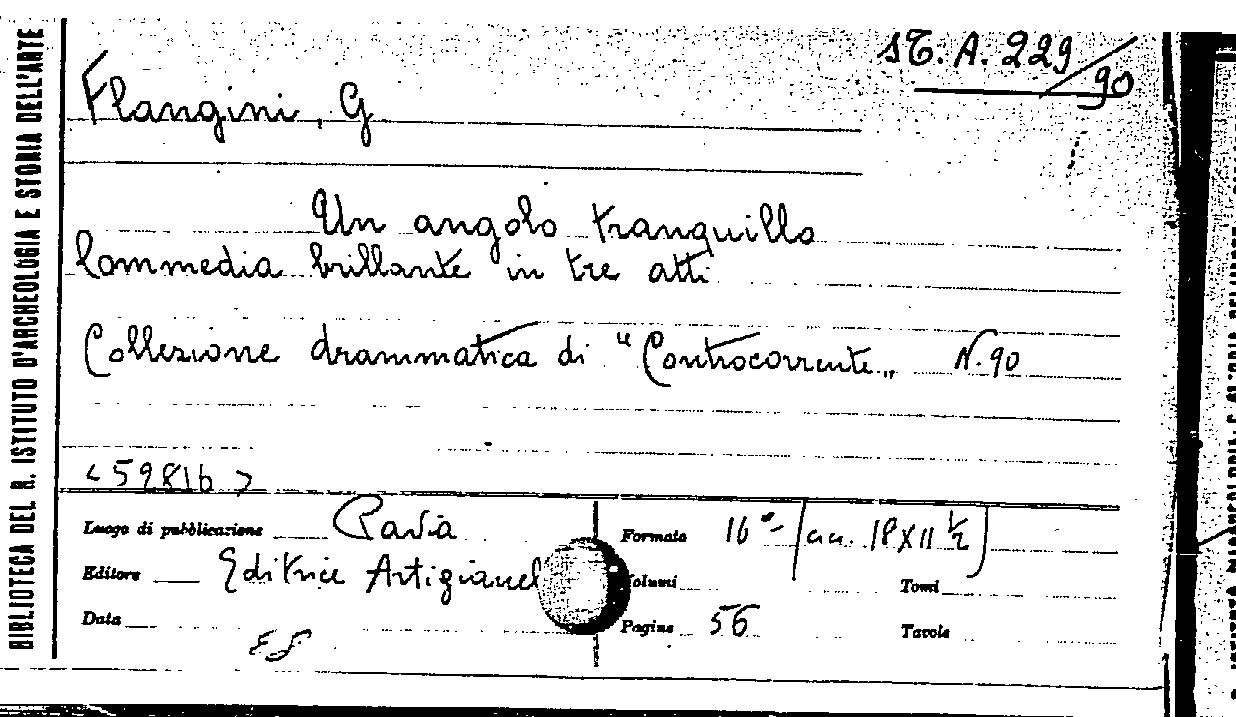 BIBLIOTECA DEL R. ISTITUTO D'ARCHEOLOGIA E STORIA DELL'ARTE
ST. A. 229/90
Flangini, G
Un angolo tranquillo
Commedia brillante in tre atti
Collezione drammatica di "Controcorrente„ N. 90
<59816>
Luogo di pubblicazione Pavia
Editore Editrice Artigianel
Data
Formato 16°- (cm. 18X11 ½)
Volumi Tomi
Pagine 56 Tavole